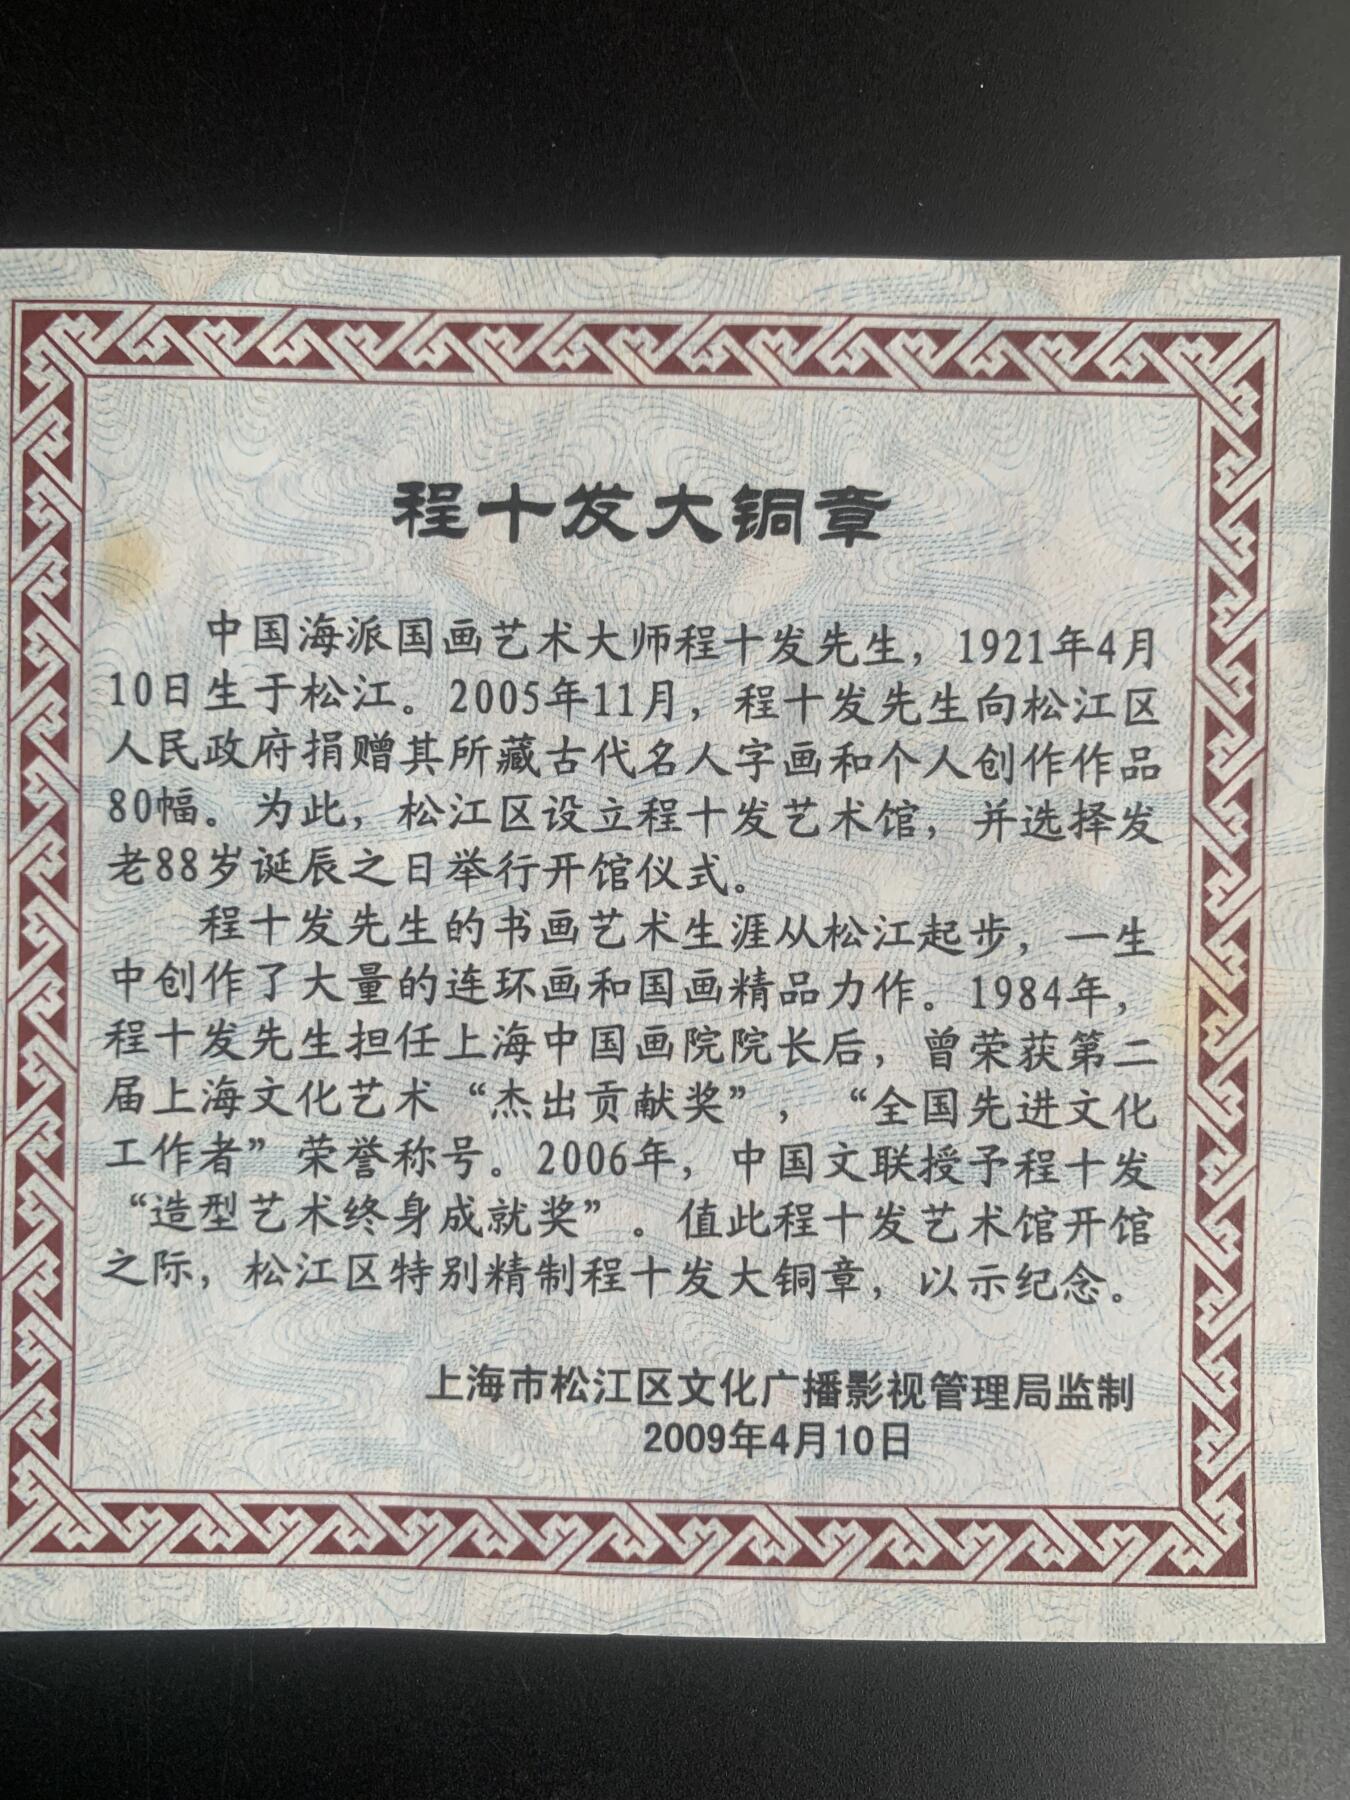 程十发大铜章
中国海派国画艺术大师程十发先生，1921年4月
10日生于松江。2005年11月，程十发先生向松江区
人民政府捐赠其所藏古代名人字画和个人创作作品
80幅。为此，松江区设立程十发艺术馆，并选择发
老88岁诞辰之日举行开馆仪式。
程十发先生的书画艺术生涯从松江起步，一生
中创作了大量的连环画和国画精品力作。1984年，
程十发先生担任上海中国画院院长后，曾荣获第二
届上海文化艺术“杰出贡献奖”，“全国先进文化
工作者”荣誉称号。2006年，中国文联授予程十发
“造型艺术终身成就奖”。值此程十发艺术馆开馆
之际，松江区特别精制程十发大铜章，以示纪念。
上海市松江区文化广播影视管理局监制
2009年4月10日